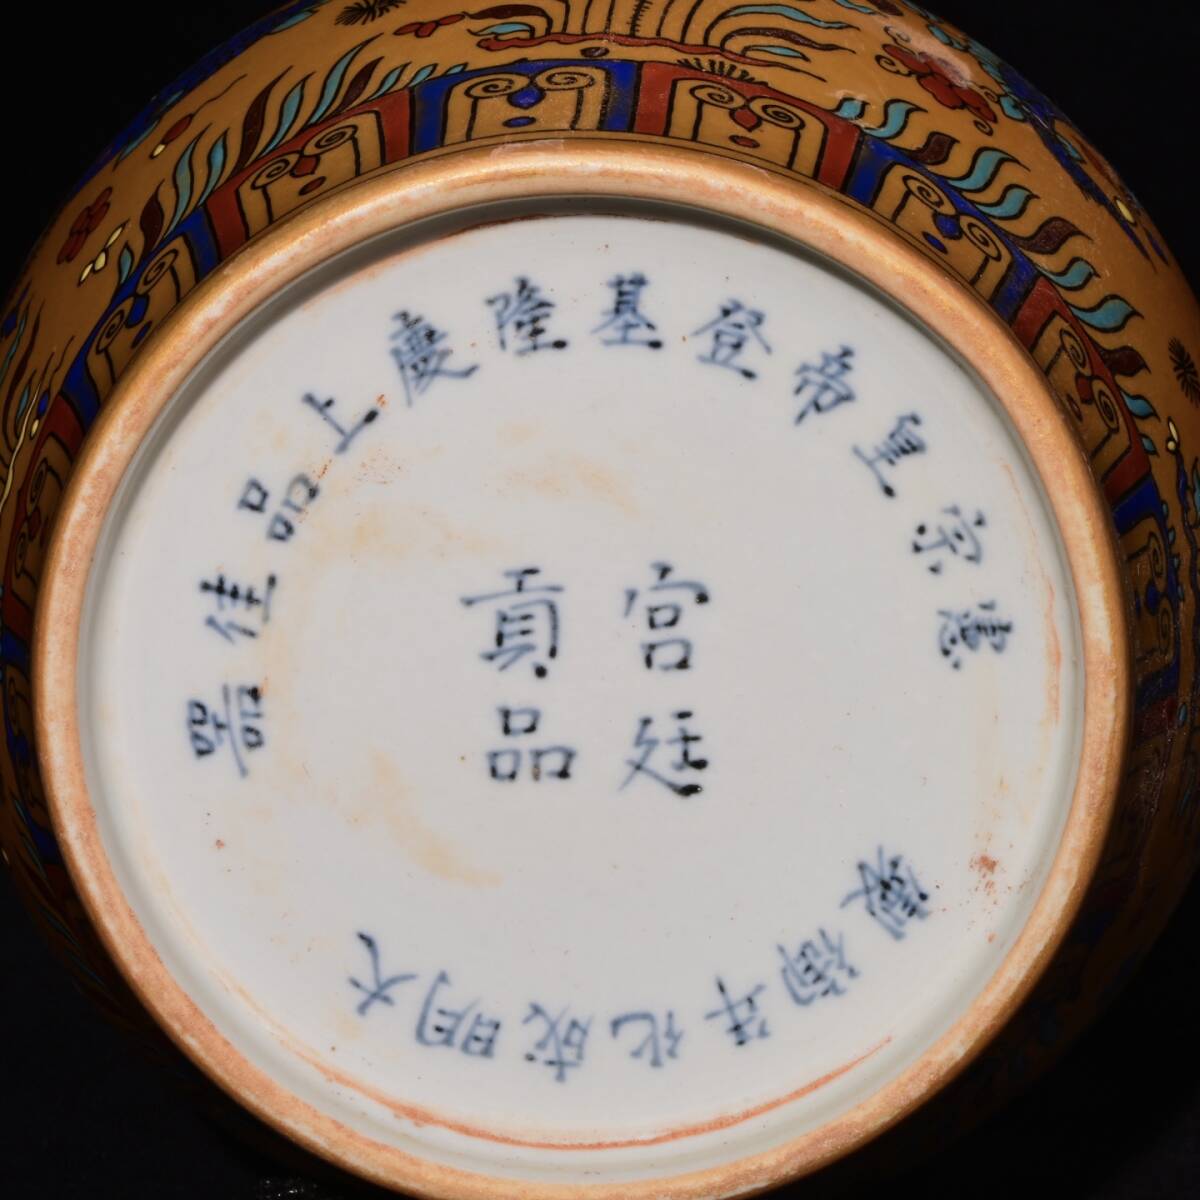 憲宗皇帝登基隆慶上品佳器
宮廷
貢品
大明成化年御製